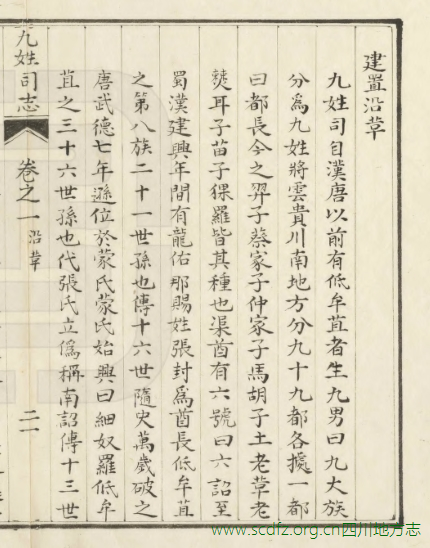 建置沿革
九姓司自漢唐以前有低牟苴者生九男曰九大族
分爲九姓將雲貴川南地方分九十九都各據一都
曰都長今之羿子蔡家子仲家子馬胡子土老草老
僰耳子苗子猓羅皆其種也渠酋有六號曰六詔至
蜀漢建興年間有龍佑那賜姓張封爲酋長低牟苴
之第八族二十一世孫也傳十六世隨史萬歲破之
唐武德七年遜位於蒙氏蒙氏始興曰細奴羅低牟
苴之三十六世孫也代張氏立僞稱南詔傳十三世
九姓司志
卷之一 沿革
www.scdfz.org.cn四川地方志